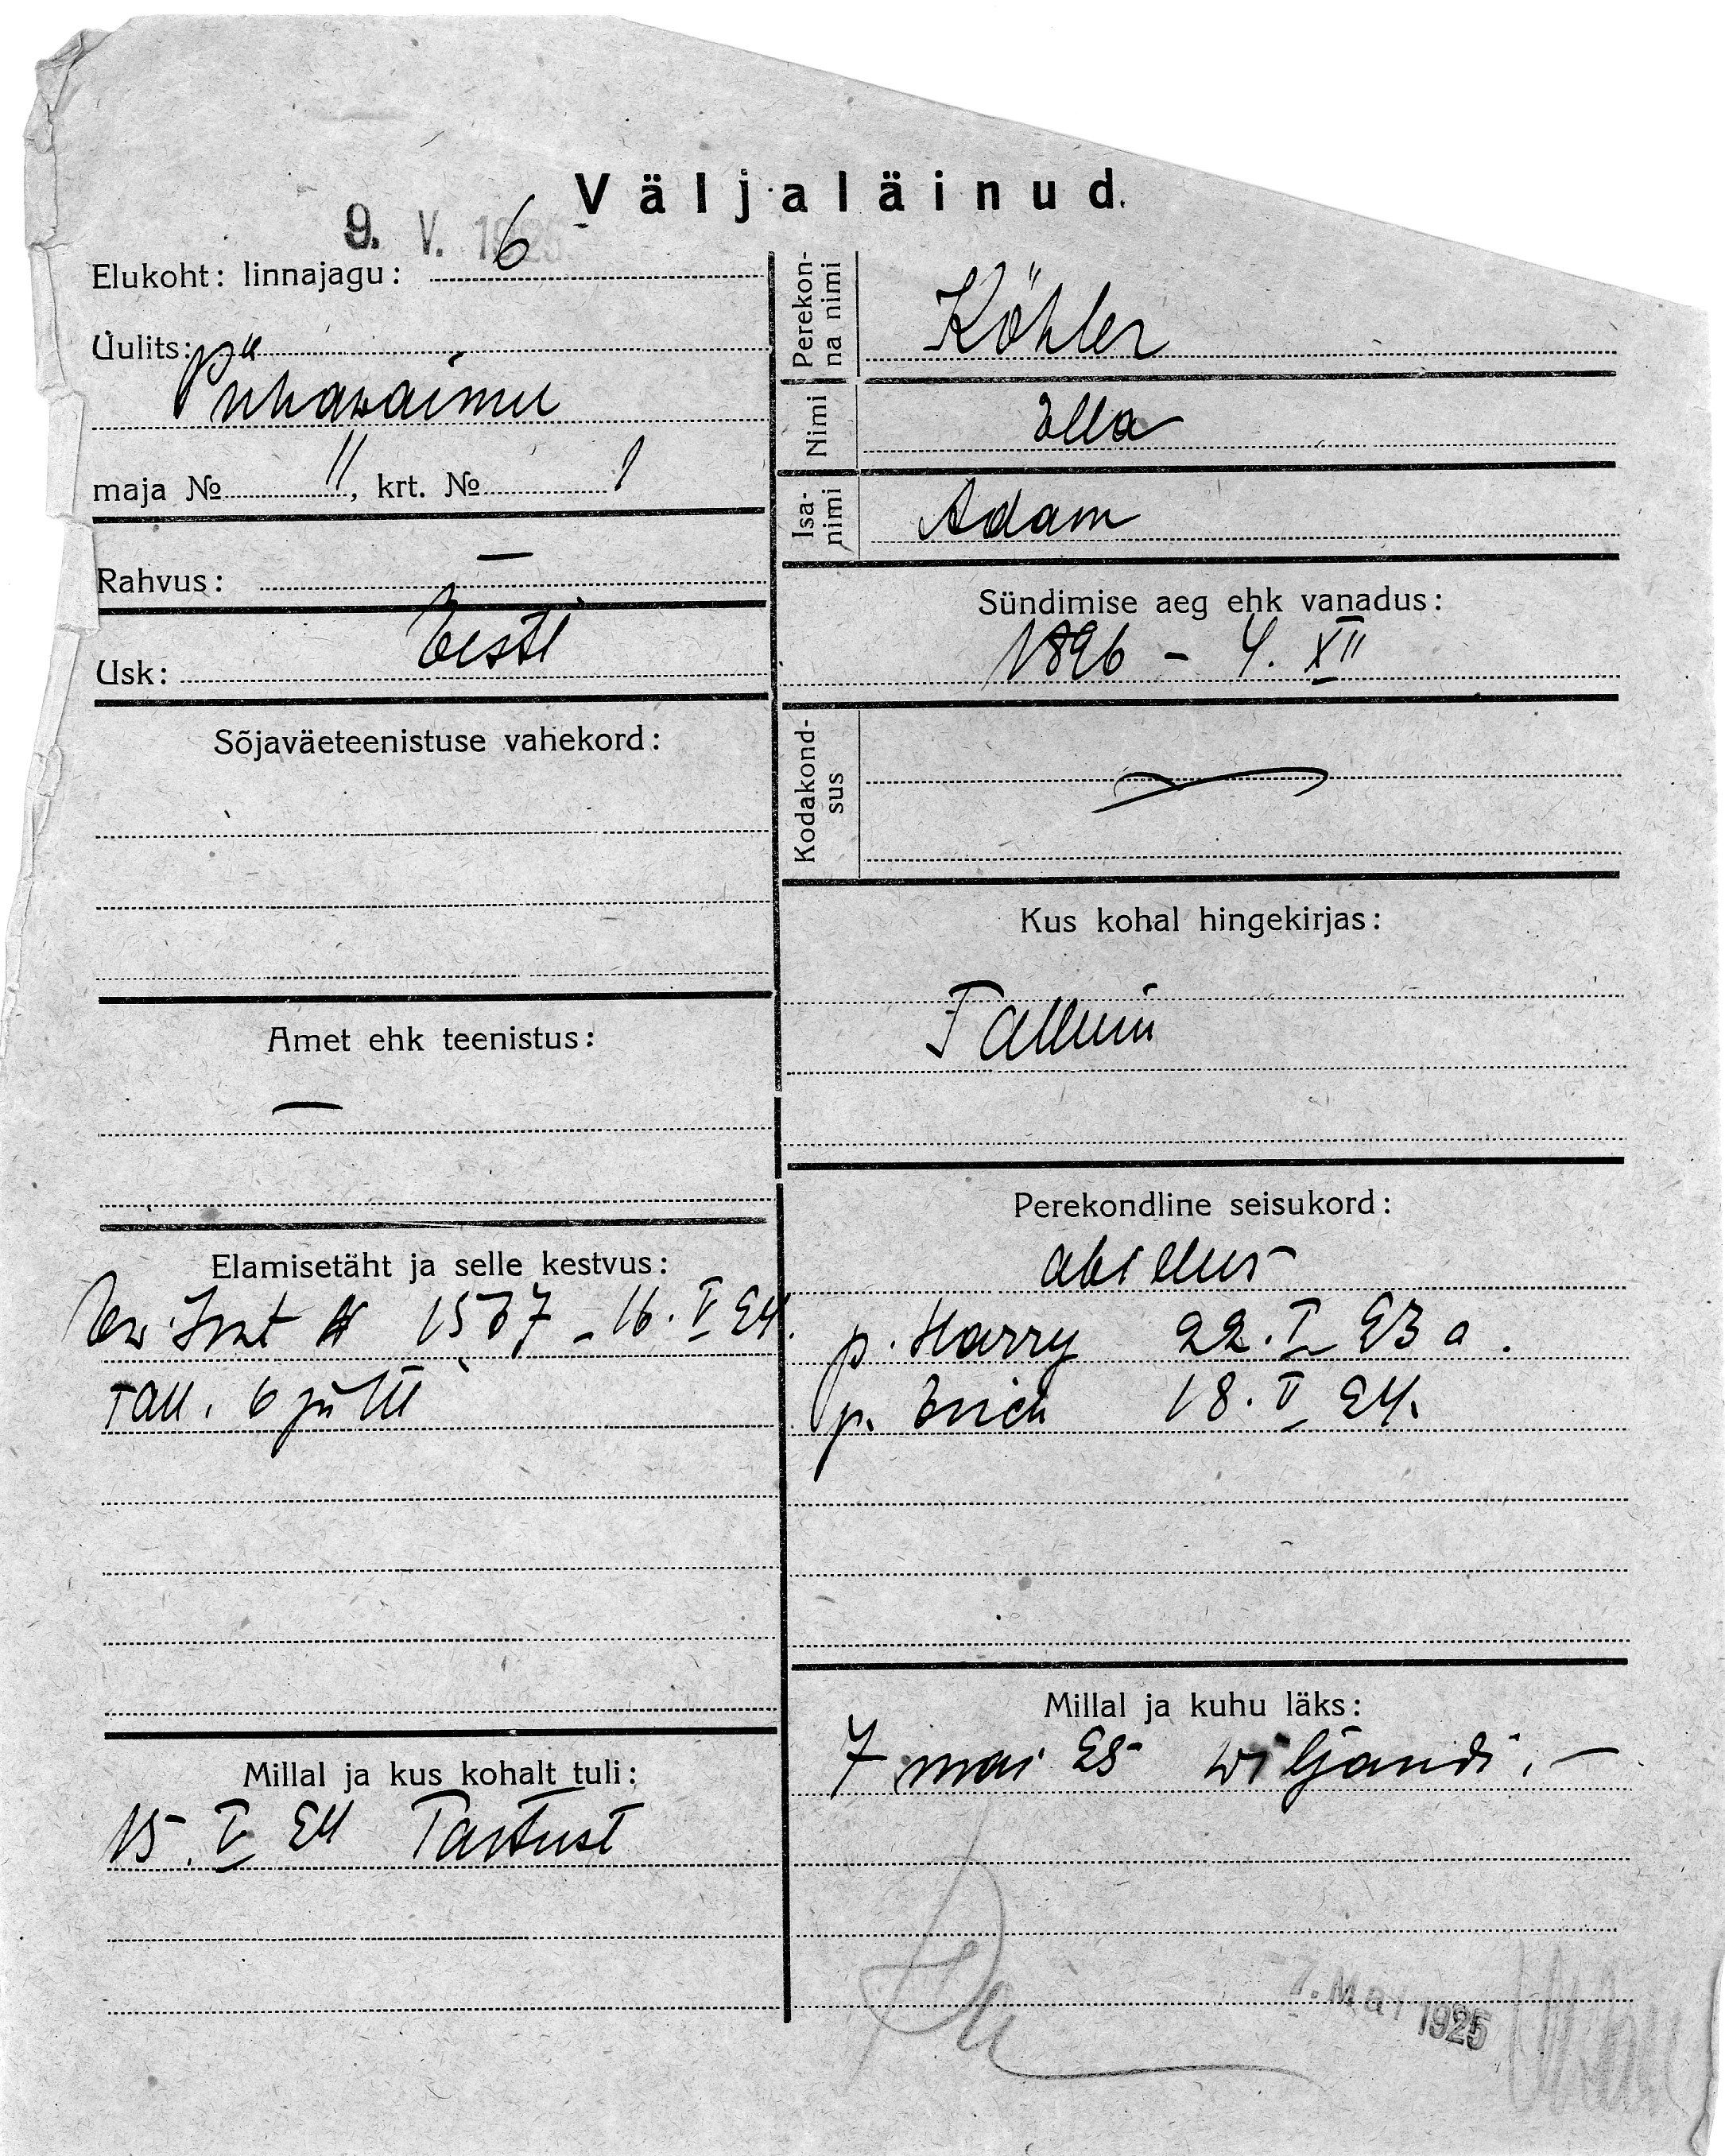 Väljaläinud.
9. V. 1925
Elukoht: linnajagu: 6
Uulits:
Pühawaimu
maja № 11, krt. № 1
Rahvus: —
Usk: Eesti
Sõjaväeteenistuse vahekord:
Amet ehk teenistus:
—
Elamisetäht ja selle kestvus:
1567 – 16. V 24.
Tall. 6 jsk
Millal ja kus kohalt tuli:
15. V 24 Tartust
Perekon-
na nimi
Köhler
Nimi
Ella
Isa-
nimi
Adam
Sündimise aeg ehk vanadus:
1896 – 4. XII
Kodakond-
sus
Kus kohal hingekirjas:
Tallinn
Perekondline seisukord:
abielus
p. Harry 22. I 23 a.
p. Erich 18. II 24.
Millal ja kuhu läks:
7 mai 25 Wiljandi. —
7. Mai 1925